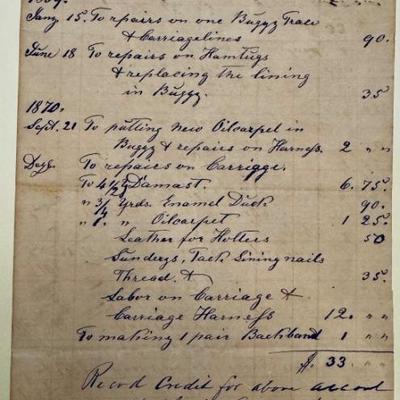 1869.
Jany 15. To repairs on one Buggy Trace
& Carriagelines 90.
June 18 To repairs on Hamtugs
& replacing the lining
in Buggy. 35
1870.
Sept. 21 To putting new Oilcarpet in
Buggy & repairs on Harness. 2 " "
To repairs on Carrigge.
To 4 1/2 y Damast. 6. 75.
" 3/4 yrds. Enamel Duck 90.
" 1. " Oilcarpet 1 25.
Leather for Holters 50
Sunderys, Tack Lining nails
Thread. & 35.
Labor on Carriage &
Carriage Harness 12. " "
To making 1 pair Backband 1 " "
$. 33 "
Record Credit for above